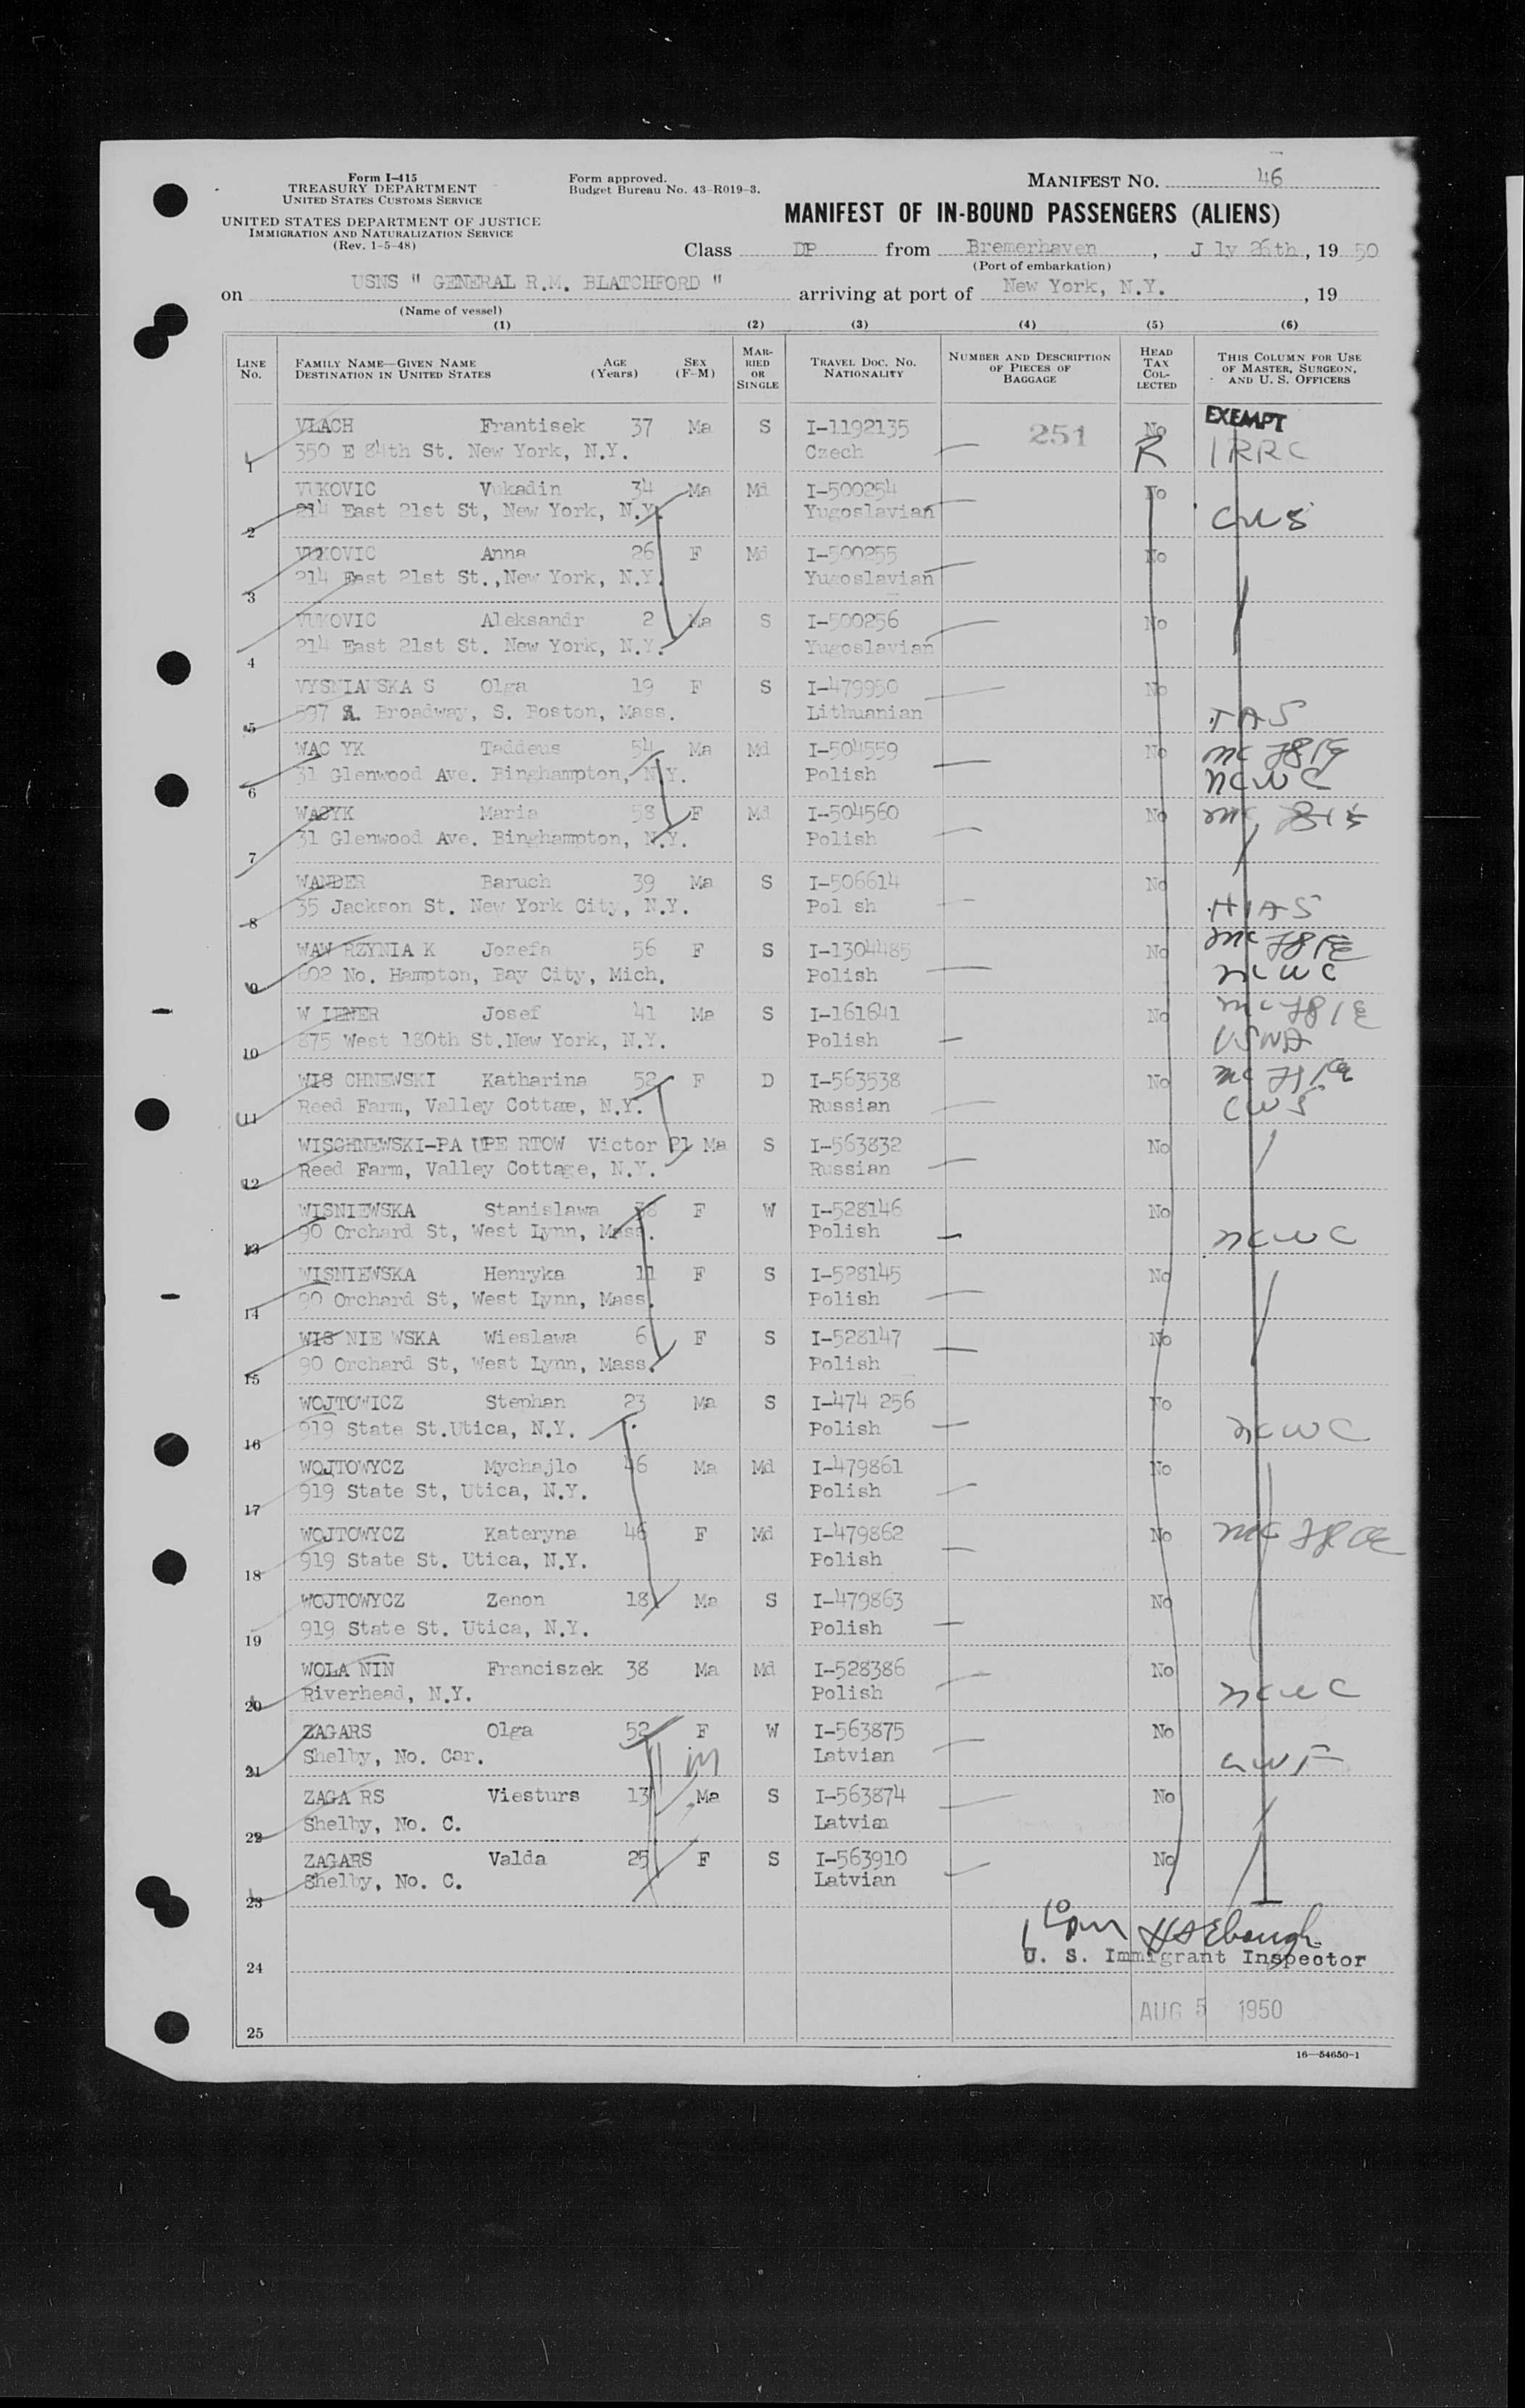 Form I-415
TREASURY DEPARTMENT
UNITED STATES CUSTOMS SERVICE
UNITED STATES DEPARTMENT OF JUSTICE
IMMIGRATION AND NATURALIZATION SERVICE
(Rev. 1-5-48)
Form approved.
Budget Bureau No. 43-R019-3.
MANIFEST NO. 46
MANIFEST OF IN-BOUND PASSENGERS (ALIENS)
Class DP from Bremerhaven, J ly 26th, 19 50
(Port of embarkation)
on USNS " GENERAL R.M. BLATCHFORD " arriving at port of New York, N.Y. , 19
(Name of vessel)
(1) (2) (3) (4) (5) (6)
LINE NO. FAMILY NAME—GIVEN NAME DESTINATION IN UNITED STATES AGE (Years) SEX (F-M) MARRIED OR SINGLE TRAVEL DOC. NO. NATIONALITY NUMBER AND DESCRIPTION OF PIECES OF BAGGAGE HEAD TAX COLLECTED THIS COLUMN FOR USE OF MASTER, SURGEON, AND U. S. OFFICERS
VLACH Frantisek 37 Ma S I-1192135 251 No EXEMPT
1 350 E 84th St. New York, N.Y. Czech R IRRC
VUKOVIC Vukadin 34 Ma Md I-500254 No
2 214 East 21st St, New York, N.Y. Yugoslavian CWS
VUKOVIC Anna 26 F Md I-500255 No
3 214 East 21st St., New York, N.Y. Yugoslavian
VUKOVIC Aleksandr 2 Ma S I-500256 No
4 214 East 21st St. New York, N.Y. Yugoslavian
VYSNIAUSKA S Olga 19 F S I-479950 No
5 597 A. Broadway, S. Boston, Mass. Lithuanian
WAC YK Taddeus 54 Ma Md I-504559 No
6 31 Glenwood Ave. Binghampton, N.Y. Polish NCWC
WACYK Maria 58 F Md I-504560 No
7 31 Glenwood Ave. Binghampton, N.Y. Polish
WANDER Baruch 39 Ma S I-506614 No
8 35 Jackson St. New York City, N.Y. Pol sh HIAS
WAW RZYNIA K Jozefa 56 F S I-1304485 No
9 602 No. Hampton, Bay City, Mich. Polish NCWC
W IENER Josef 41 Ma S I-161641 No
10 875 West 180th St.New York, N.Y. Polish USNA
WIS CHNEWSKI Katharina 52 F D I-563538 No
11 Reed Farm, Valley Cottae, N.Y. Russian CWS
WISCHNEWSKI-PA UPE RTOW Victor 21 Ma S I-563832 No
12 Reed Farm, Valley Cottage, N.Y. Russian
WISNIEWSKA Stanislawa F W I-528146 No
13 90 Orchard St, West Lynn, Mass. Polish NCWC
WISNIEWSKA Henryka 11 F S I-528145 No
14 90 Orchard St, West Lynn, Mass. Polish
WIS NIE WSKA Wieslawa 6 F S I-528147 No
15 90 Orchard St, West Lynn, Mass. Polish
WOJTOWICZ Stephan 23 Ma S I-474 256 No
16 919 State St.Utica, N.Y. Polish NCWC
WOJTOWYCZ Mychajlo 46 Ma Md I-479861 No
17 919 State St, Utica, N.Y. Polish
WOJTOWYCZ Kateryna 46 F Md I-479862 No
18 919 State St. Utica, N.Y. Polish
WOJTOWYCZ Zenon 18 Ma S I-479863 No
19 919 State St. Utica, N.Y. Polish
WOLA NIN Franciszek 38 Ma Md I-528386 No
20 Riverhead, N.Y. Polish NCWC
ZAGARS Olga 52 F W I-563875 No
21 Shelby, No. Car. Latvian
ZAGA RS Viesturs 13 Ma S I-563874 No
22 Shelby, No. C. Latvian
ZAGARS Valda 25 F S I-563910 No
23 Shelby, No. C. Latvian
U. S. Immigrant Inspector
24
AUG 5 1950
25
16—54650-1